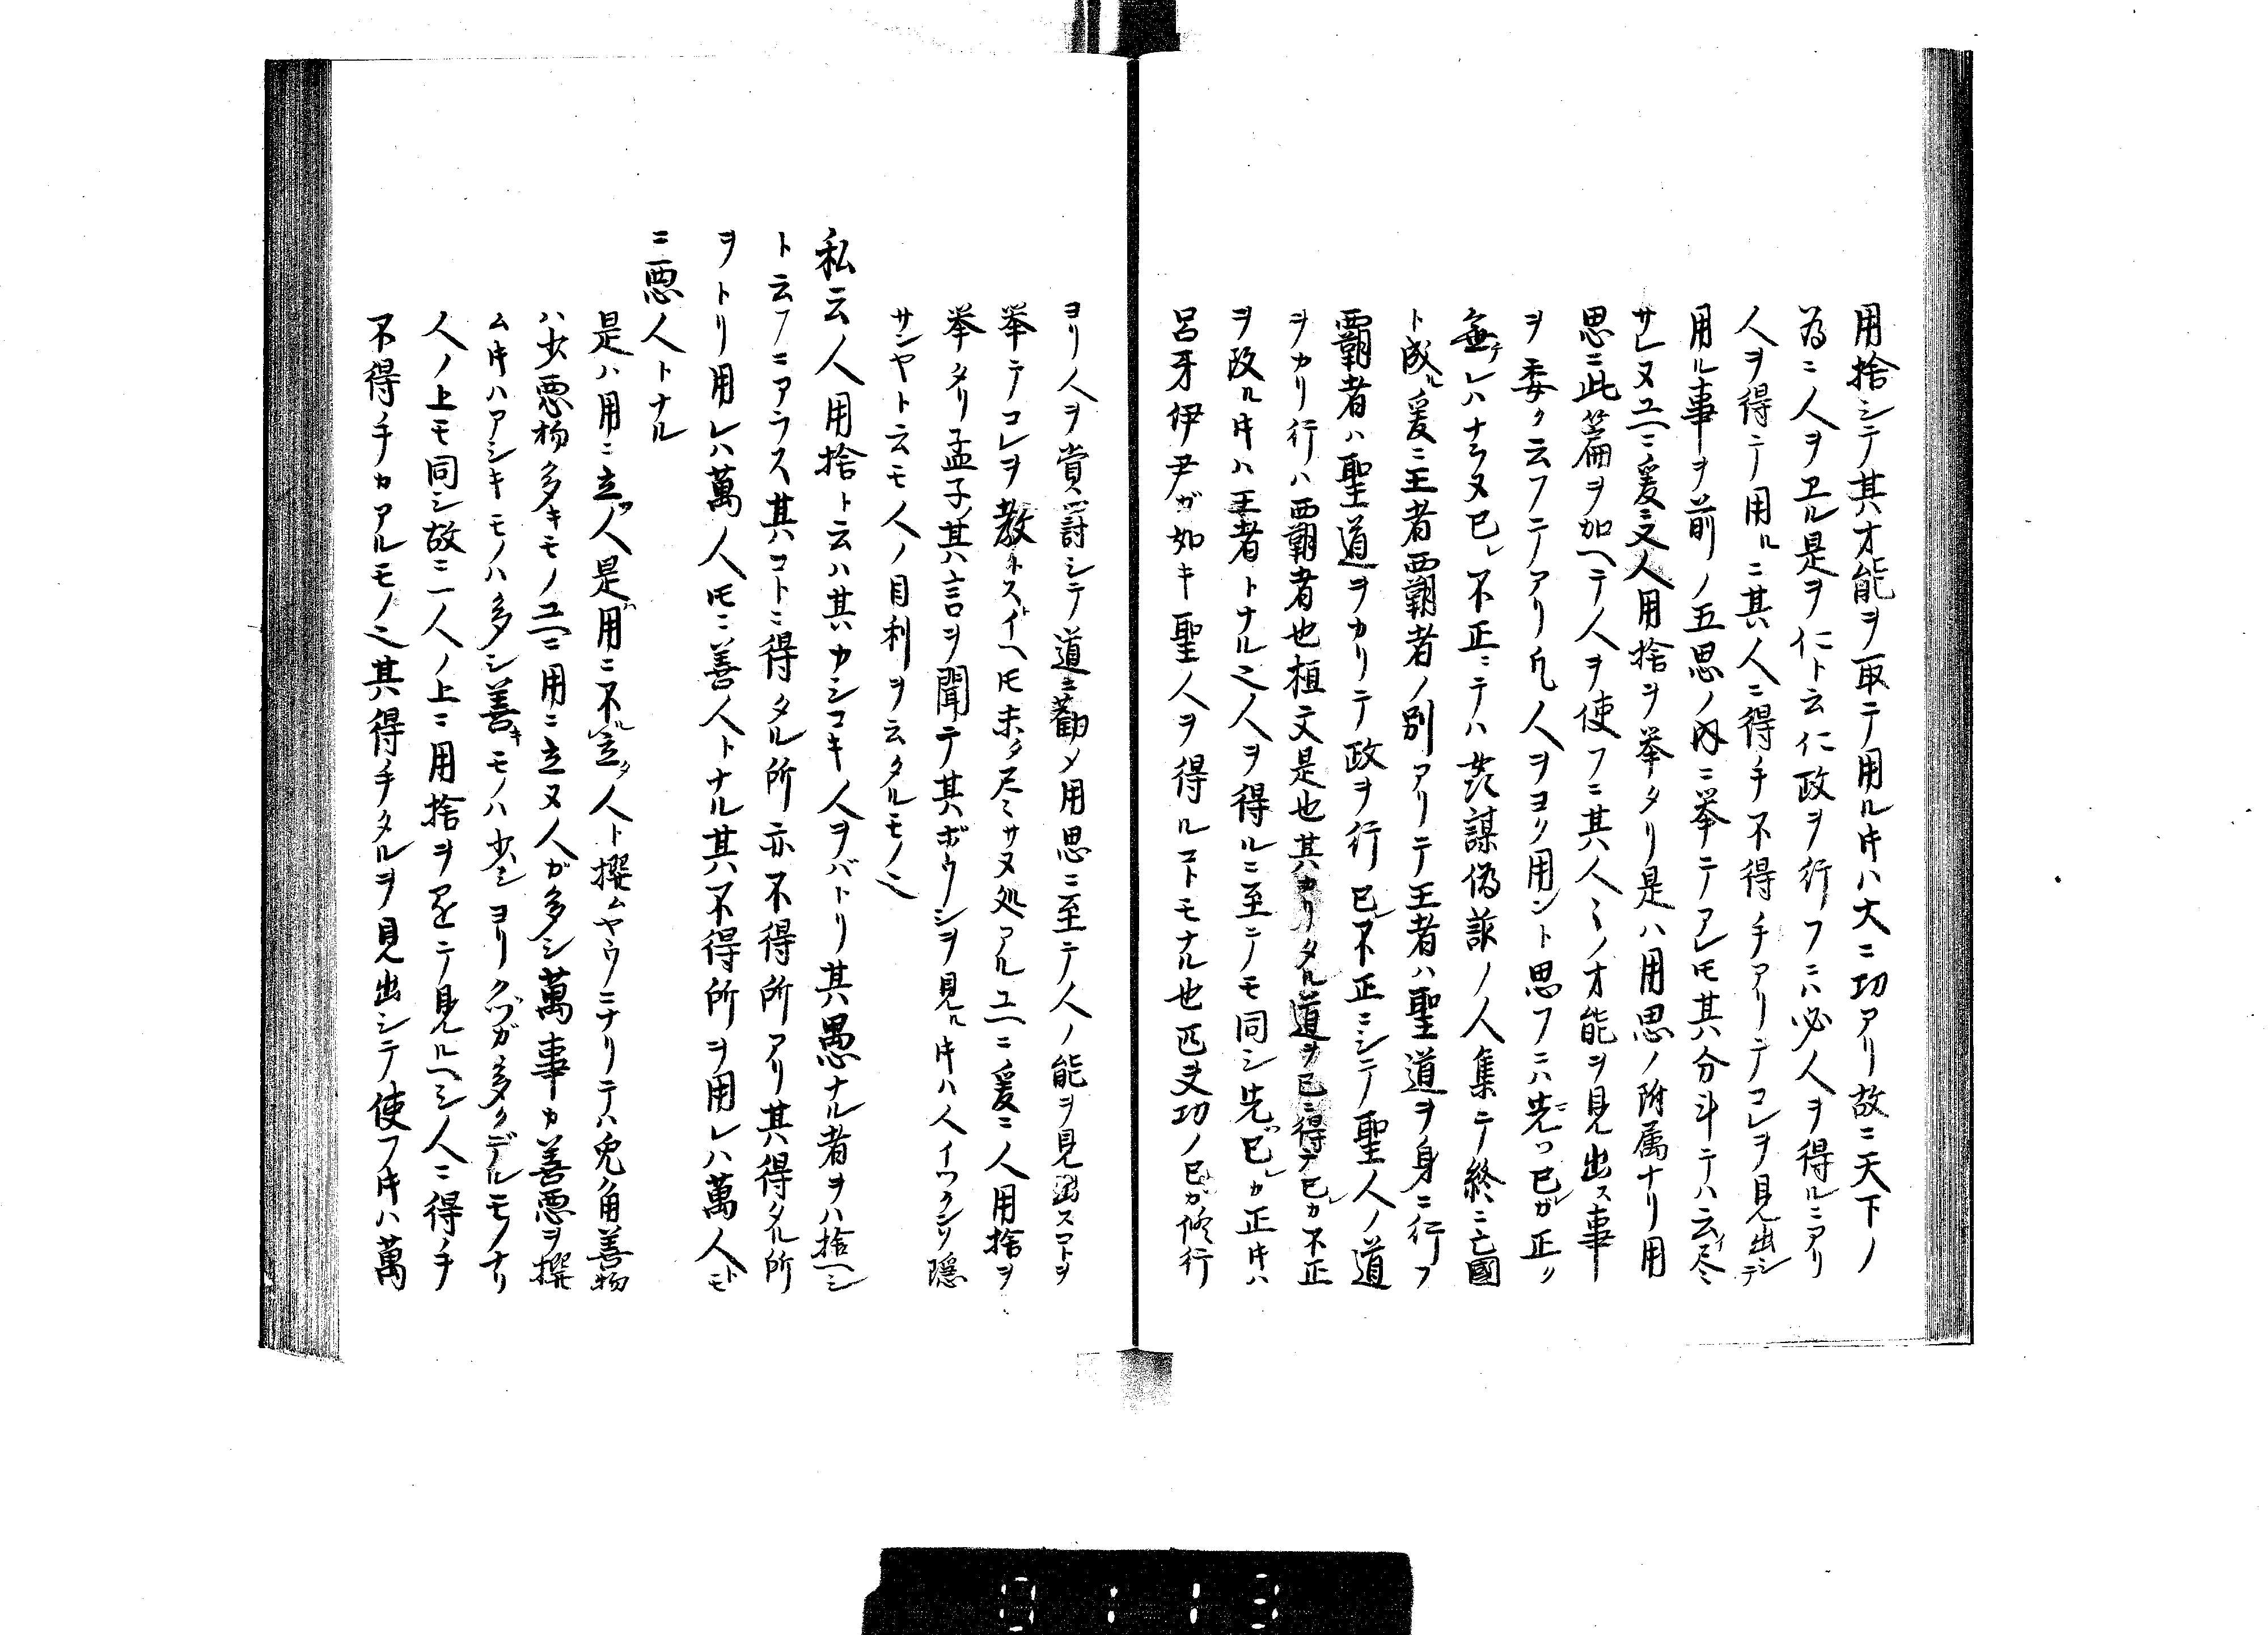 用捨シテ其才能ヲ取テ用ル片ハ大ニ功アリ故ニ天下ノ
為ニ人ヲヱル是ヲ仁ト云仁政ヲ行フニハ必人ヲ得ルニアリ
人ヲ得テ用ルニ其人ニ得手不得手アリテコレヲ見出シテ
用ル事ヲ前ノ五思ノ内ニ挙テアレ𪜈其分斗テハ云イ尽ミ
サレヌユヘニ爰ニ又人用捨ヲ挙タリ是ハ用思ノ附属ナリ用
思ニ此篇ヲ加ヘテ人ヲ使フニ其人ミノ才能ヲ見出ス事
ヲ委ク云フテアリ凡人ヲヨク用ント思フニハ先ツ己レガ正ク
無テレハナラヌ己レ不正ニテハ 謀偽詐ノ人集テ終ニ亡國
ト成ル爰ニ王者覇者ノ別アリテ王者ハ聖道ヲ身ニ行フ
覇者ハ聖道ヲカリテ政ヲ行己レ不正ニシテ聖人ノ道
ヲカリ行ハ覇者也桓文是也其カリタル道ヲ己ニ得テ己レカ不正
ヲ改ル片ハ王者トナル也人ヲ得ルニ至テモ同シ先己レカ正片ハ
呂牙伊尹ガ如キ聖人ヲ得ルコトモナル也匹夫功ノ己カ修行
ヨリ人ヲ賞罸シテ道ニ勸メ用思ニ至テ人ノ能ヲ見出スコトヲ
挙テコレヲ教トストイヘ𪜈未タ尽ミサヌ処アルユヘニ爰ニ人用捨ヲ
挙タリ孟子其言ヲ聞テ其ボウシヲ見ル片ハ人イヅクンソ隠
サンヤト云モ人ノ目利ヲ云タルモノ也
私云人用捨ト云ハ其カシコキ人ヲバトリ其愚ナル者ヲハ捨ヘシ
ト云フニアラス其コトニ得タル所亦不得所アリ其得タル所
ヲトリ用レハ萬人𪜈ニ善人トナル其不得所ヲ用レハ萬人トモ
ニ悪人トナル
是ハ用ニ立ツ人是ハ用ニ不ル立タ人ト撰ムヤウニナリテハ兎角善物
ハ少悪物多キモノユヘニ用ニ立ヌ人ガ多シ萬事カ善悪ヲ撰
ム片ハアシキモノハ多シ善キモノハ少シヨリクヅガ多クデルモノナリ
人ノ上モ同シ故ニ一人ノ上ニ用捨ヲ テ見ルヘシ人ニ得手
不得手カアルモノ也其得手タルヲ見出シテ使フ片ハ萬